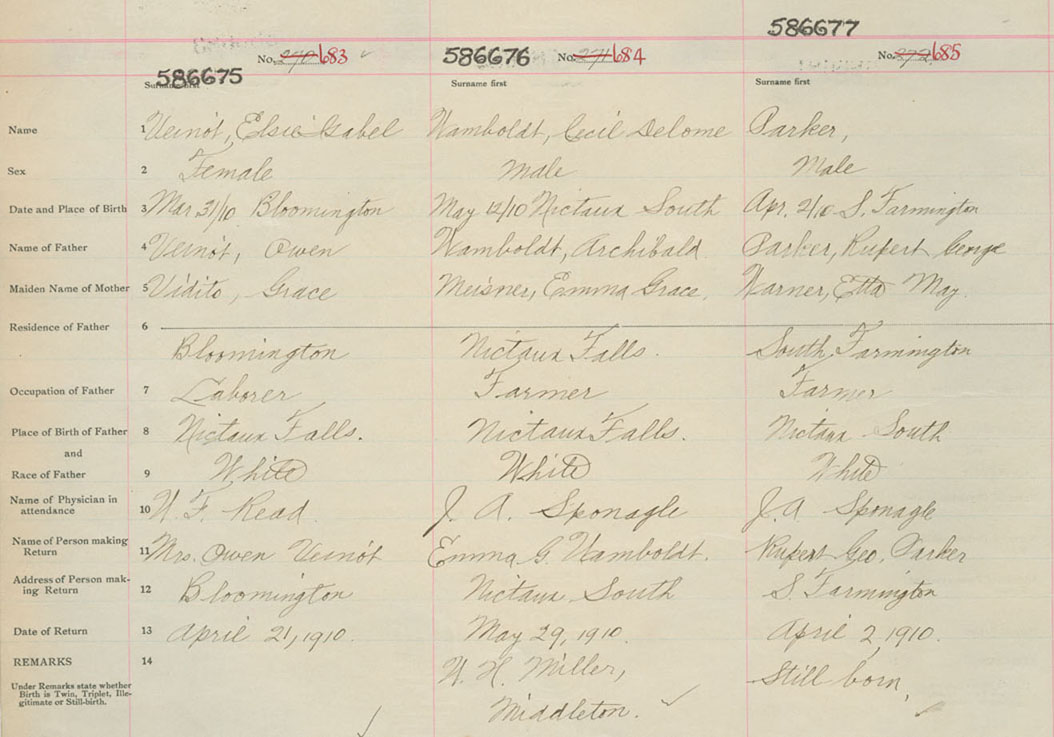 586677
No. 270 683 586676 No. 271 684 No. 272 685
586675
Surname first Surname first Surname first
Name 1 Veinot, Elsie Isabel Wamboldt, Cecil Delome Parker,
Sex 2 Female Male Male
Date and Place of Birth 3 Mar 31/10 Bloomington May 12/10 Nictaux South Apr. 2/10 S. Farmington
Name of Father 4 Veinot, Owen Wamboldt, Archibald Parker, Rupert George
Maiden Name of Mother 5 Vidito, Grace Meisner, Emma Grace. Warner, Etta May.
Residence of Father 6
Bloomington Nictaux Falls. South Farmington
Occupation of Father 7 Laborer Farmer Farmer
Place of Birth of Father 8 Nictaux Falls. Nictaux Falls. Nictaux South
and
Race of Father 9 White White White
Name of Physician in
attendance 10 W. F. Read. J. A. Sponagle J. A. Sponagle
Name of Person making
Return 11 Mrs. Owen Veinot Emma G. Wamboldt. Rupert Geo. Parker
Address of Person mak-
ing Return 12 Bloomington Nictaux South S. Farmington
Date of Return 13 April 21, 1910. May 29, 1910. April 2, 1910.
REMARKS 14 W. H. Miller, Still born,
Under Remarks state whether
Birth is Twin, Triplet, Ille-
gitimate or Still-birth.
Middleton.